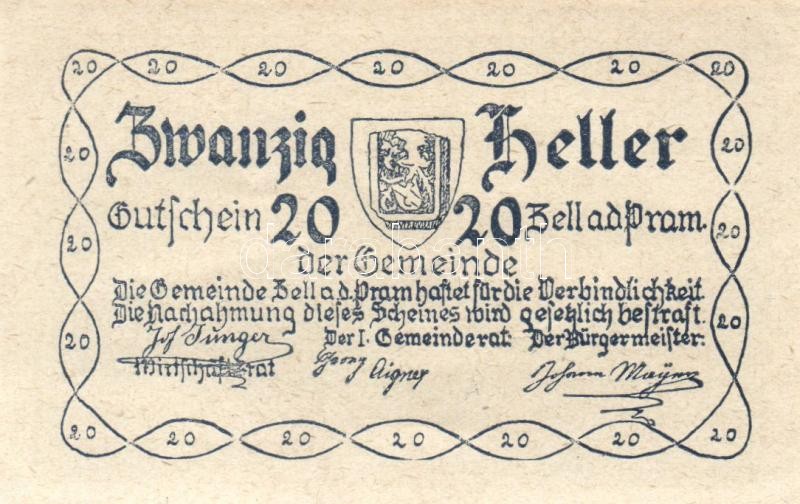 20 20 20 20 20 20 20
Zwanzig Heller
Gutschein 20 20 Zell a.d. Pram.
der Gemeinde
Die Gemeinde Zell a.d. Pram haftet für die Verbindlichkeit.
Die Nachahmung dieses Scheines wird gesetzlich bestraft.
Jos Junger Der I. Gemeinderat: Der Bürgermeister:
Wirtschaftsrat Georg Aigner Johann Mayer
20 20 20 20 20 20 20
20 20 20
20 20 20
darabanth